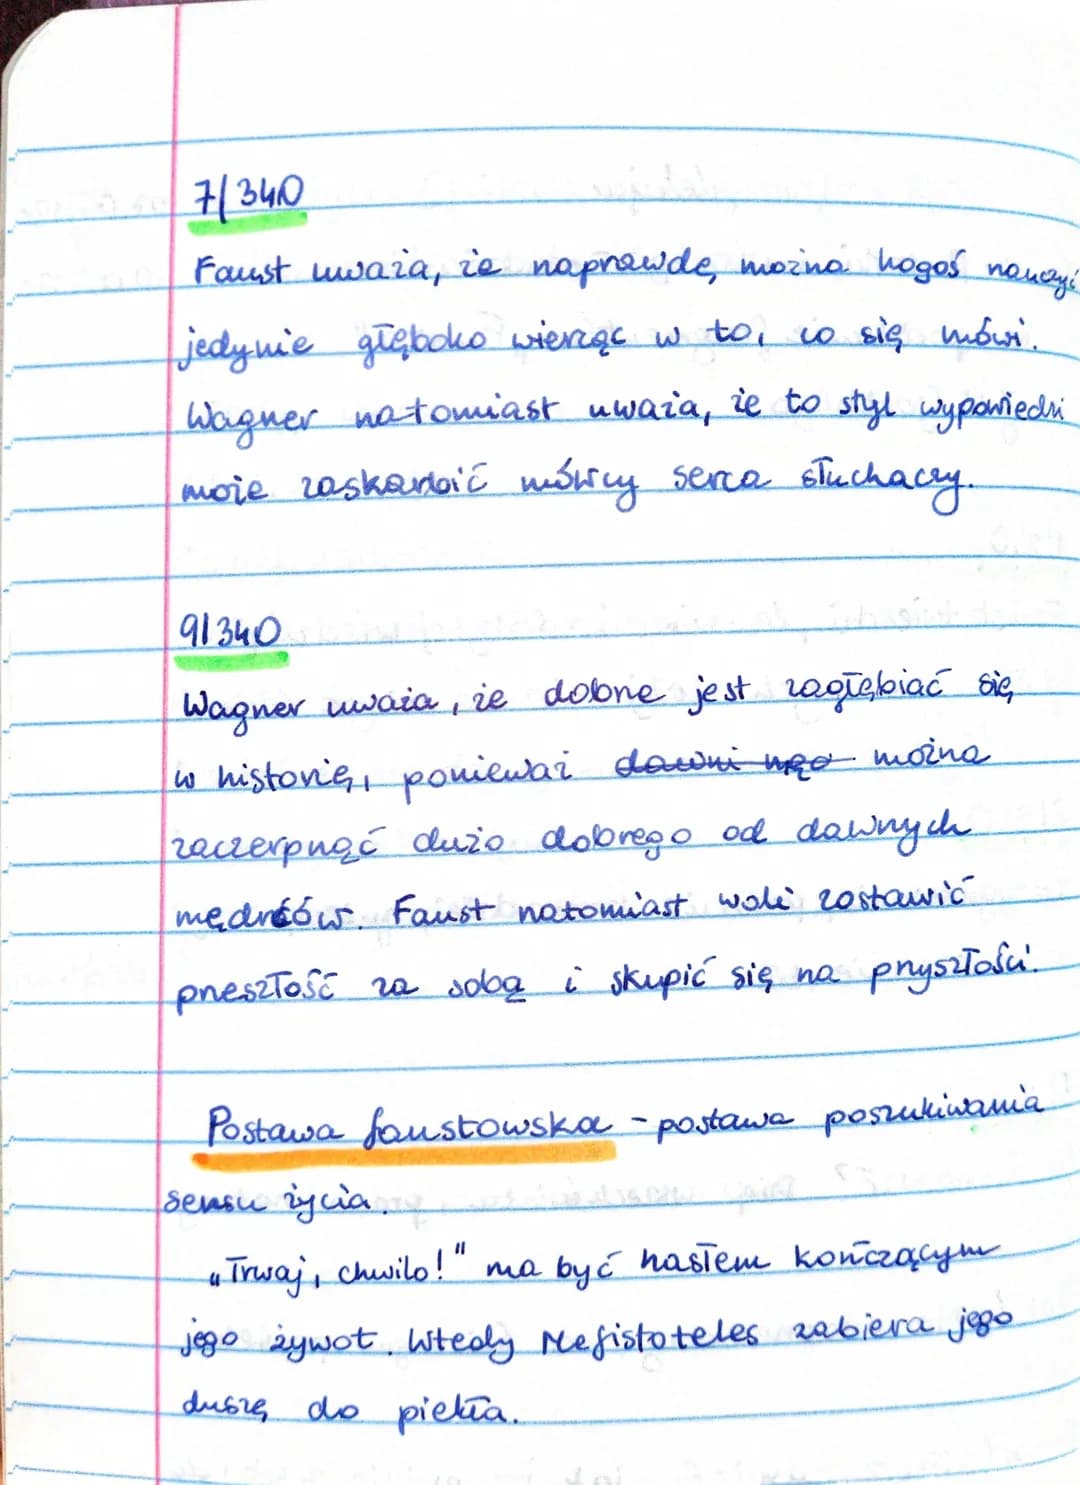 7/340
Faust uważa, że naprawdę można kogoś nauczyć
jedynie głęboko wierząc w to, co się mówi.
Wagner natomiast uważa, że to styl wypowiedzi
może zaskarbić mówcy serca słuchaczy.
9/340
Wagner uważa, że dobrze jest zagłębiać się
w historię, ponieważ dawni można
zaczerpnąć dużo dobrego od dawnych
mędrców. Faust natomiast woli zostawić
przeszłość za sobą i skupić się na przyszłości.
Postawa faustowska - postawa poszukiwania
sensu życia.
„Trwaj, chwilo!" ma być hasłem kończącym
jego żywot. Wtedy Mefistoteles zabiera jego
duszę do piekła.